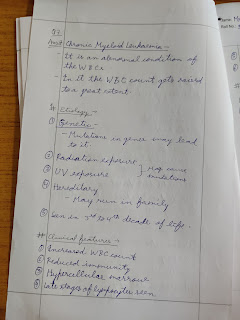 Q3.
Ans) Chronic Myeloid Leukaemia -
- It is an abnormal condition of
the WBCs
- In it the WBC count gets raised
to a great extent.
# Etiology -
① Genetic -
- Mutations in genes may lead
to it
② Radiation exposure } May cause
③ UV exposure mutations
④ Hereditary
- May run in family
⑤ Seen in 3rd to 4th decade of life.
## Clinical features -
① Increased WBC count
② Reduced immunity
③ Hypercellular marrow
④ Late stages of lymphocytes seen